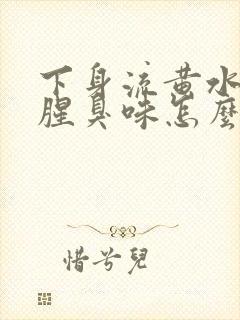 下身流黄水
腥臭味怎麽
惜兮兒